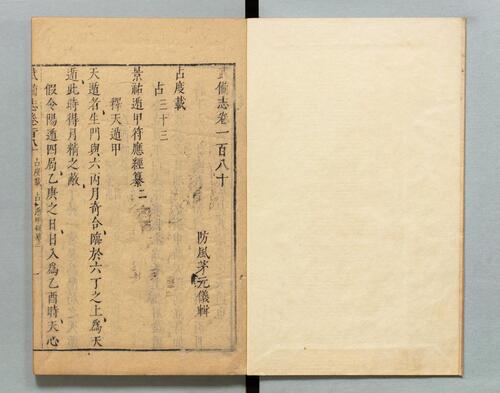 武備志卷一百八十
防風茅元儀輯
占度載
占三十三
景祐遁甲符應經纂二
釋天遁甲
天遁者生門與六丙月奇合臨於六丁之上為天
遁此時得月精之蔽
假令陽遁四局乙庚之日日入為乙酉時天心
武備志卷百八
占度載